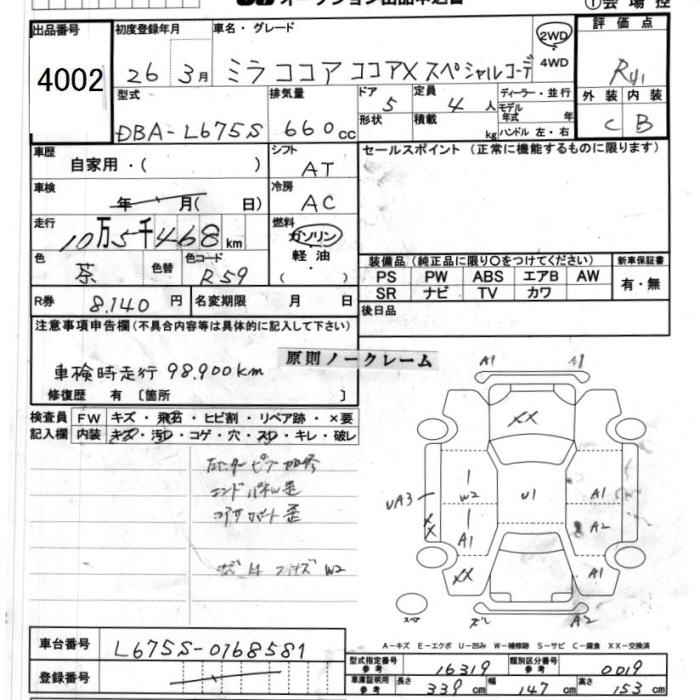 出品番号
4002
初度登録年月
26 3月
車名・グレード
ミラココア ココアX スペシャルコーデ
2WD
4WD
評価点
外装 内装
C B
型式
DBA-L675S
排気量
660cc
ドア
5
定員
4人
形状
積載
kg
ディーラー・並行
モデル年式 年
ハンドル 左・右
車歴
自家用・( )
シフト
AT
車検
年 月( 日)
冷房
AC
走行
10万5千468km
燃料
ガソリン
軽油
( )
色
茶
色替
色コード
R59
R券
8,140円
名変期限 月 日
セールスポイント(正常に機能するものに限ります)
装備品(純正品に限り〇をつけてください)
新車保証書
PS PW ABS エアB AW
SR ナビ TV カワ
有・無
後日品
注意事項申告欄(不具合内容等は具体的に記入して下さい)
車検時走行 98,900km
修復歴 有 〔箇所 〕
原則ノークレーム
検査員記入欄
FW キズ・飛石・ヒビ割・リペア跡・×要
内装 キズ・汚れ・コゲ・穴・スレ・キレ・破レ
エンドパネルW歪
コアサポート歪
W2
A1
XX
W2
U1
A1
UA3
XX
A1
A2
XX
A1
A2
スペア
A-キズ E-エクボ U-凹み W-補修跡 S-サビ C-腐食 XX-交換済
車台番号
L675S-0768581
登録番号
型式指定番号 参考
16319
類別区分番号 参考
0019
車庫証明用 参考
長さ 339cm
幅 147cm
高さ 153cm